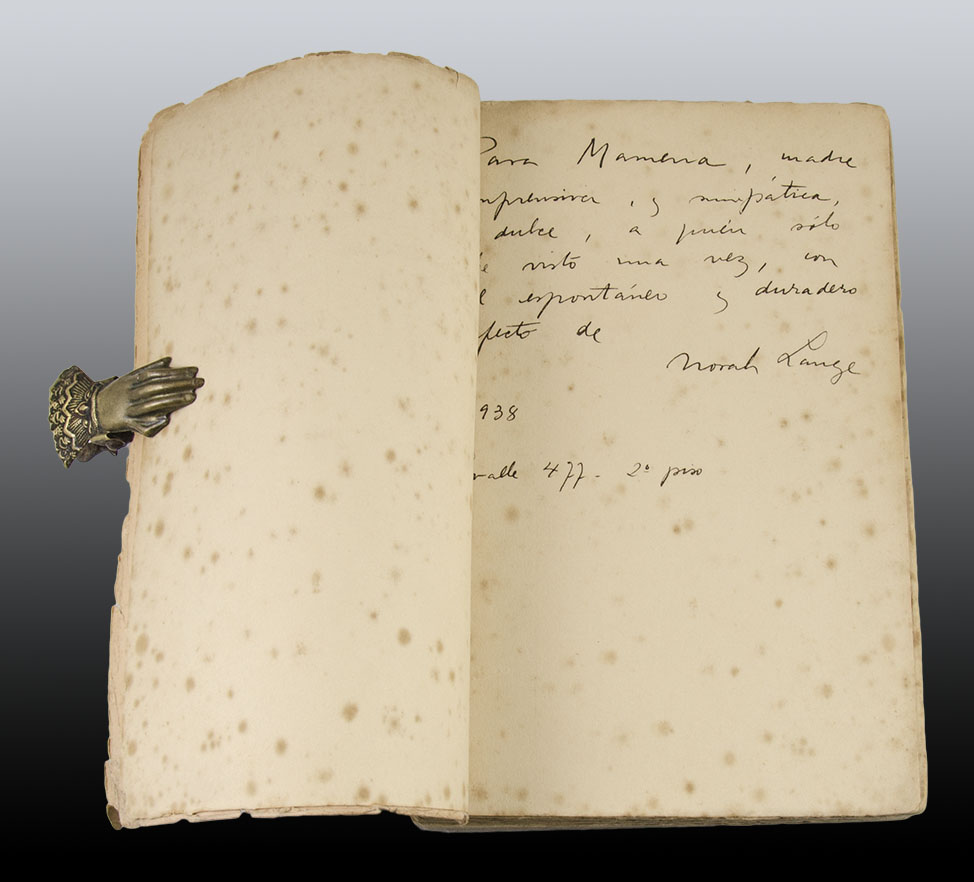 Para Mamerra, madre
mprensiva, y simpática,
dulce, a quién sólo
e visto una vez, con
l espontáneo y duradero
fecto de
Norah Lange
938
valle 477 - 2º piso